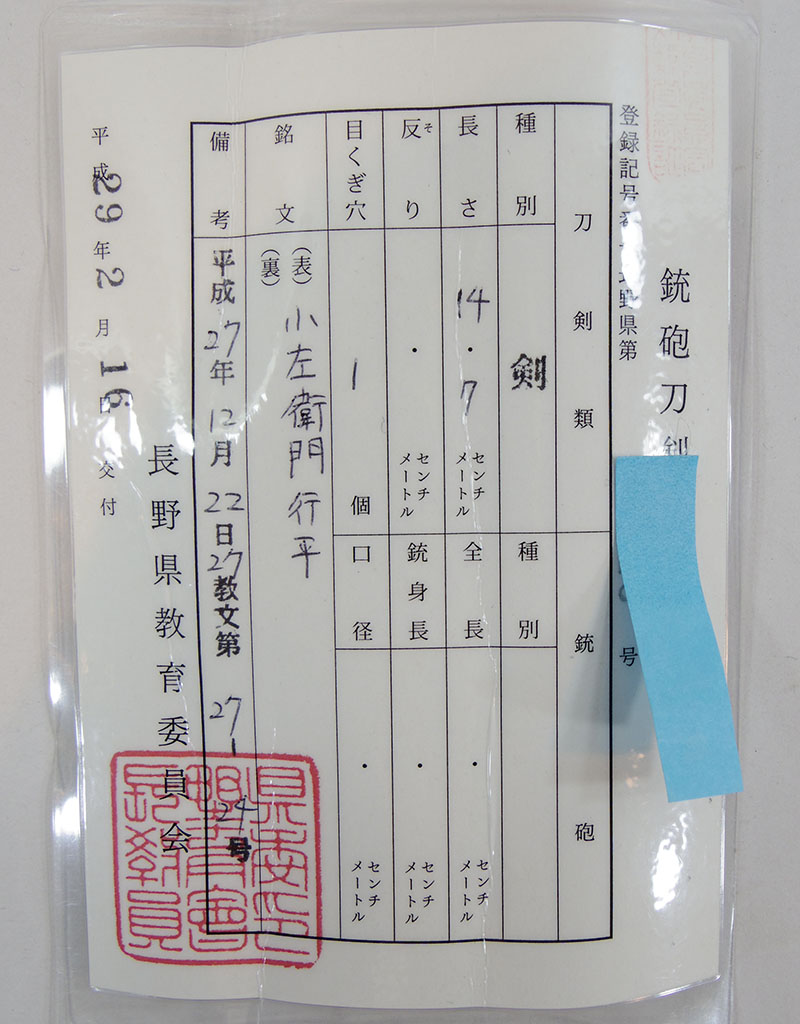 銃砲刀剣
登録記号番号長野県第
号
刀剣類
銃砲
種別
剣
種別
長さ
14・7
センチメートル
全長
・
センチメートル
反り
そ
・
センチメートル
銃身長
・
センチメートル
目くぎ穴
1
個
口径
・
センチメートル
銘文
(表)小左衛門行平
(裏)
備考
平成27年12月22日27教文第27-24号
長野県教育委員会
平成29年2月16日交付